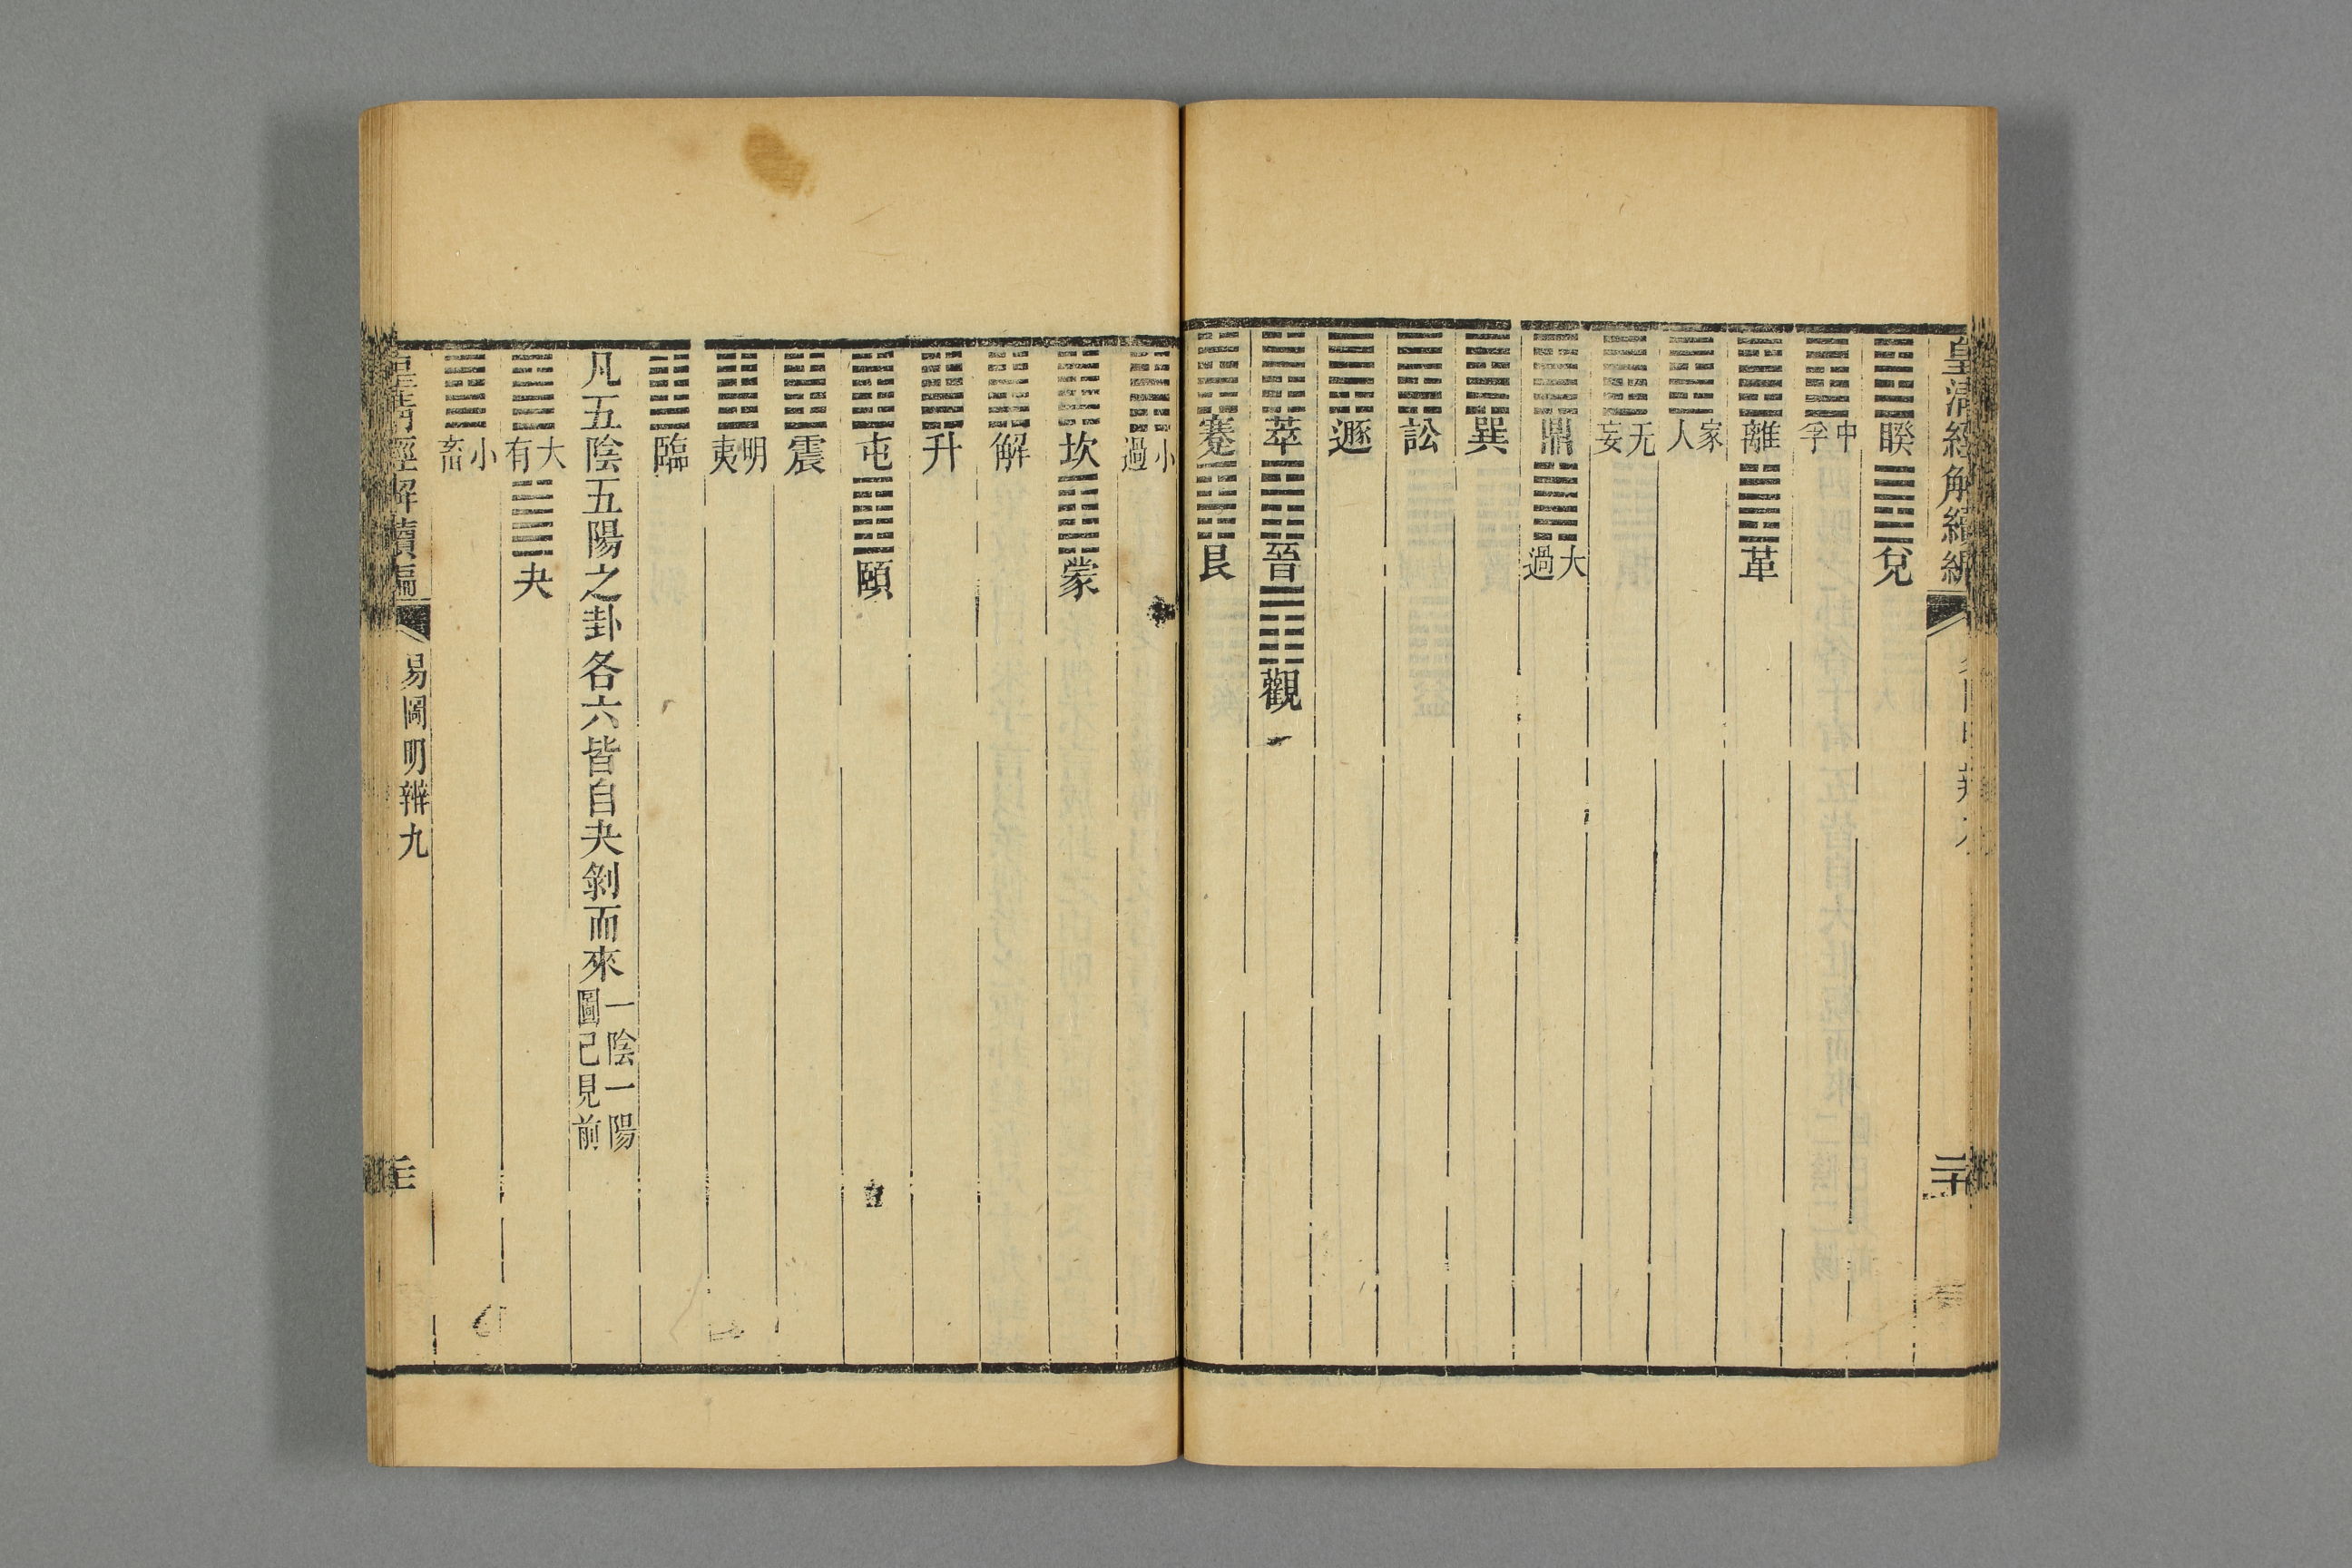 皇清經解續編
二十
睽 兌
中孚
離 革
家人
无妄
鼎 大過
巽
訟
遯
萃 晉 觀
蹇 艮
小過
坎 蒙
解
升
屯 頤
震
明夷
臨
凡五陰五陽之卦各六皆自夬剝而來一陰一陽圖已見前
大有 夬
小畜
皇清經解續編
易圖明辨九